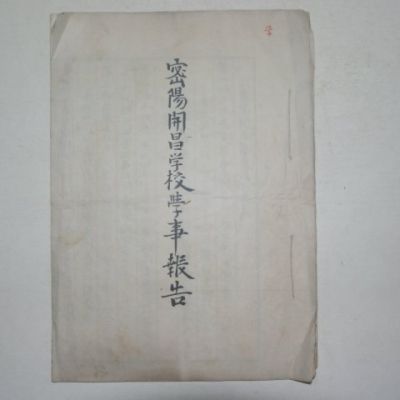 密陽開昌学校學事報告